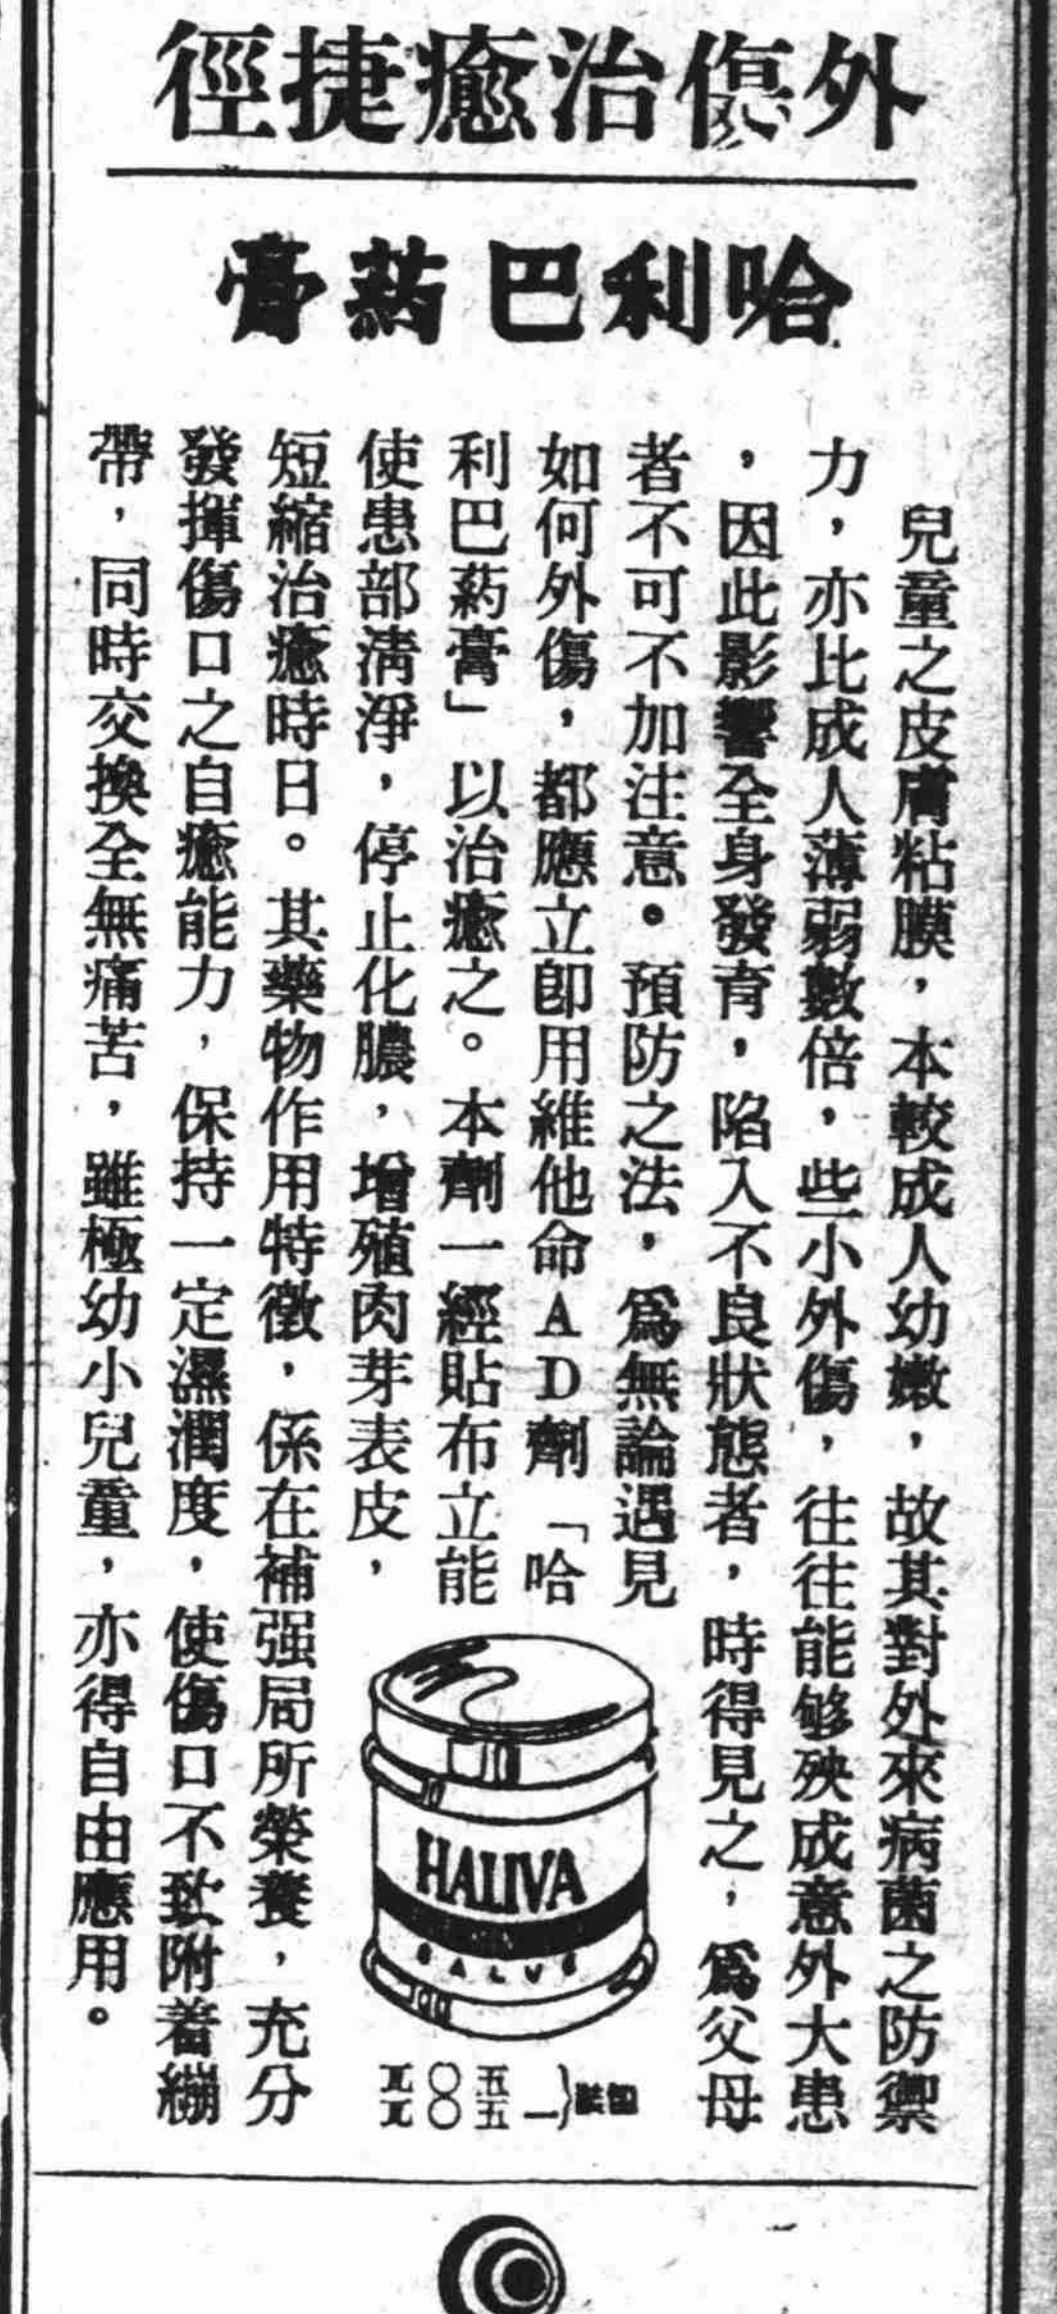 外傷治癒捷徑
哈利巴葯膏
兒童之皮膚粘膜，本較成人幼嫩，故其對外來病菌之防禦
力，亦比成人薄弱數倍，些小外傷，往往能够殃成意外大患
，因此影響全身發育，陷入不良狀態者，時得見之，爲父母
者不可不加注意。預防之法，爲無論遇見
如何外傷，都應立即用維他命AD劑「哈
利巴葯膏」以治癒之。本劑一經貼布立能
使患部清淨，停止化膿，增殖肉芽表皮，
短縮治癒時日。其藥物作用特徵，係在補强局所榮養，充分
發揮傷口之自癒能力，保持一定濕潤度，使傷口不致附着繃
帶，同時交換全無痛苦，雖極幼小兒童，亦得自由應用。
HALIVA
SALVE
包裝
一五五
〇〇
瓦瓦